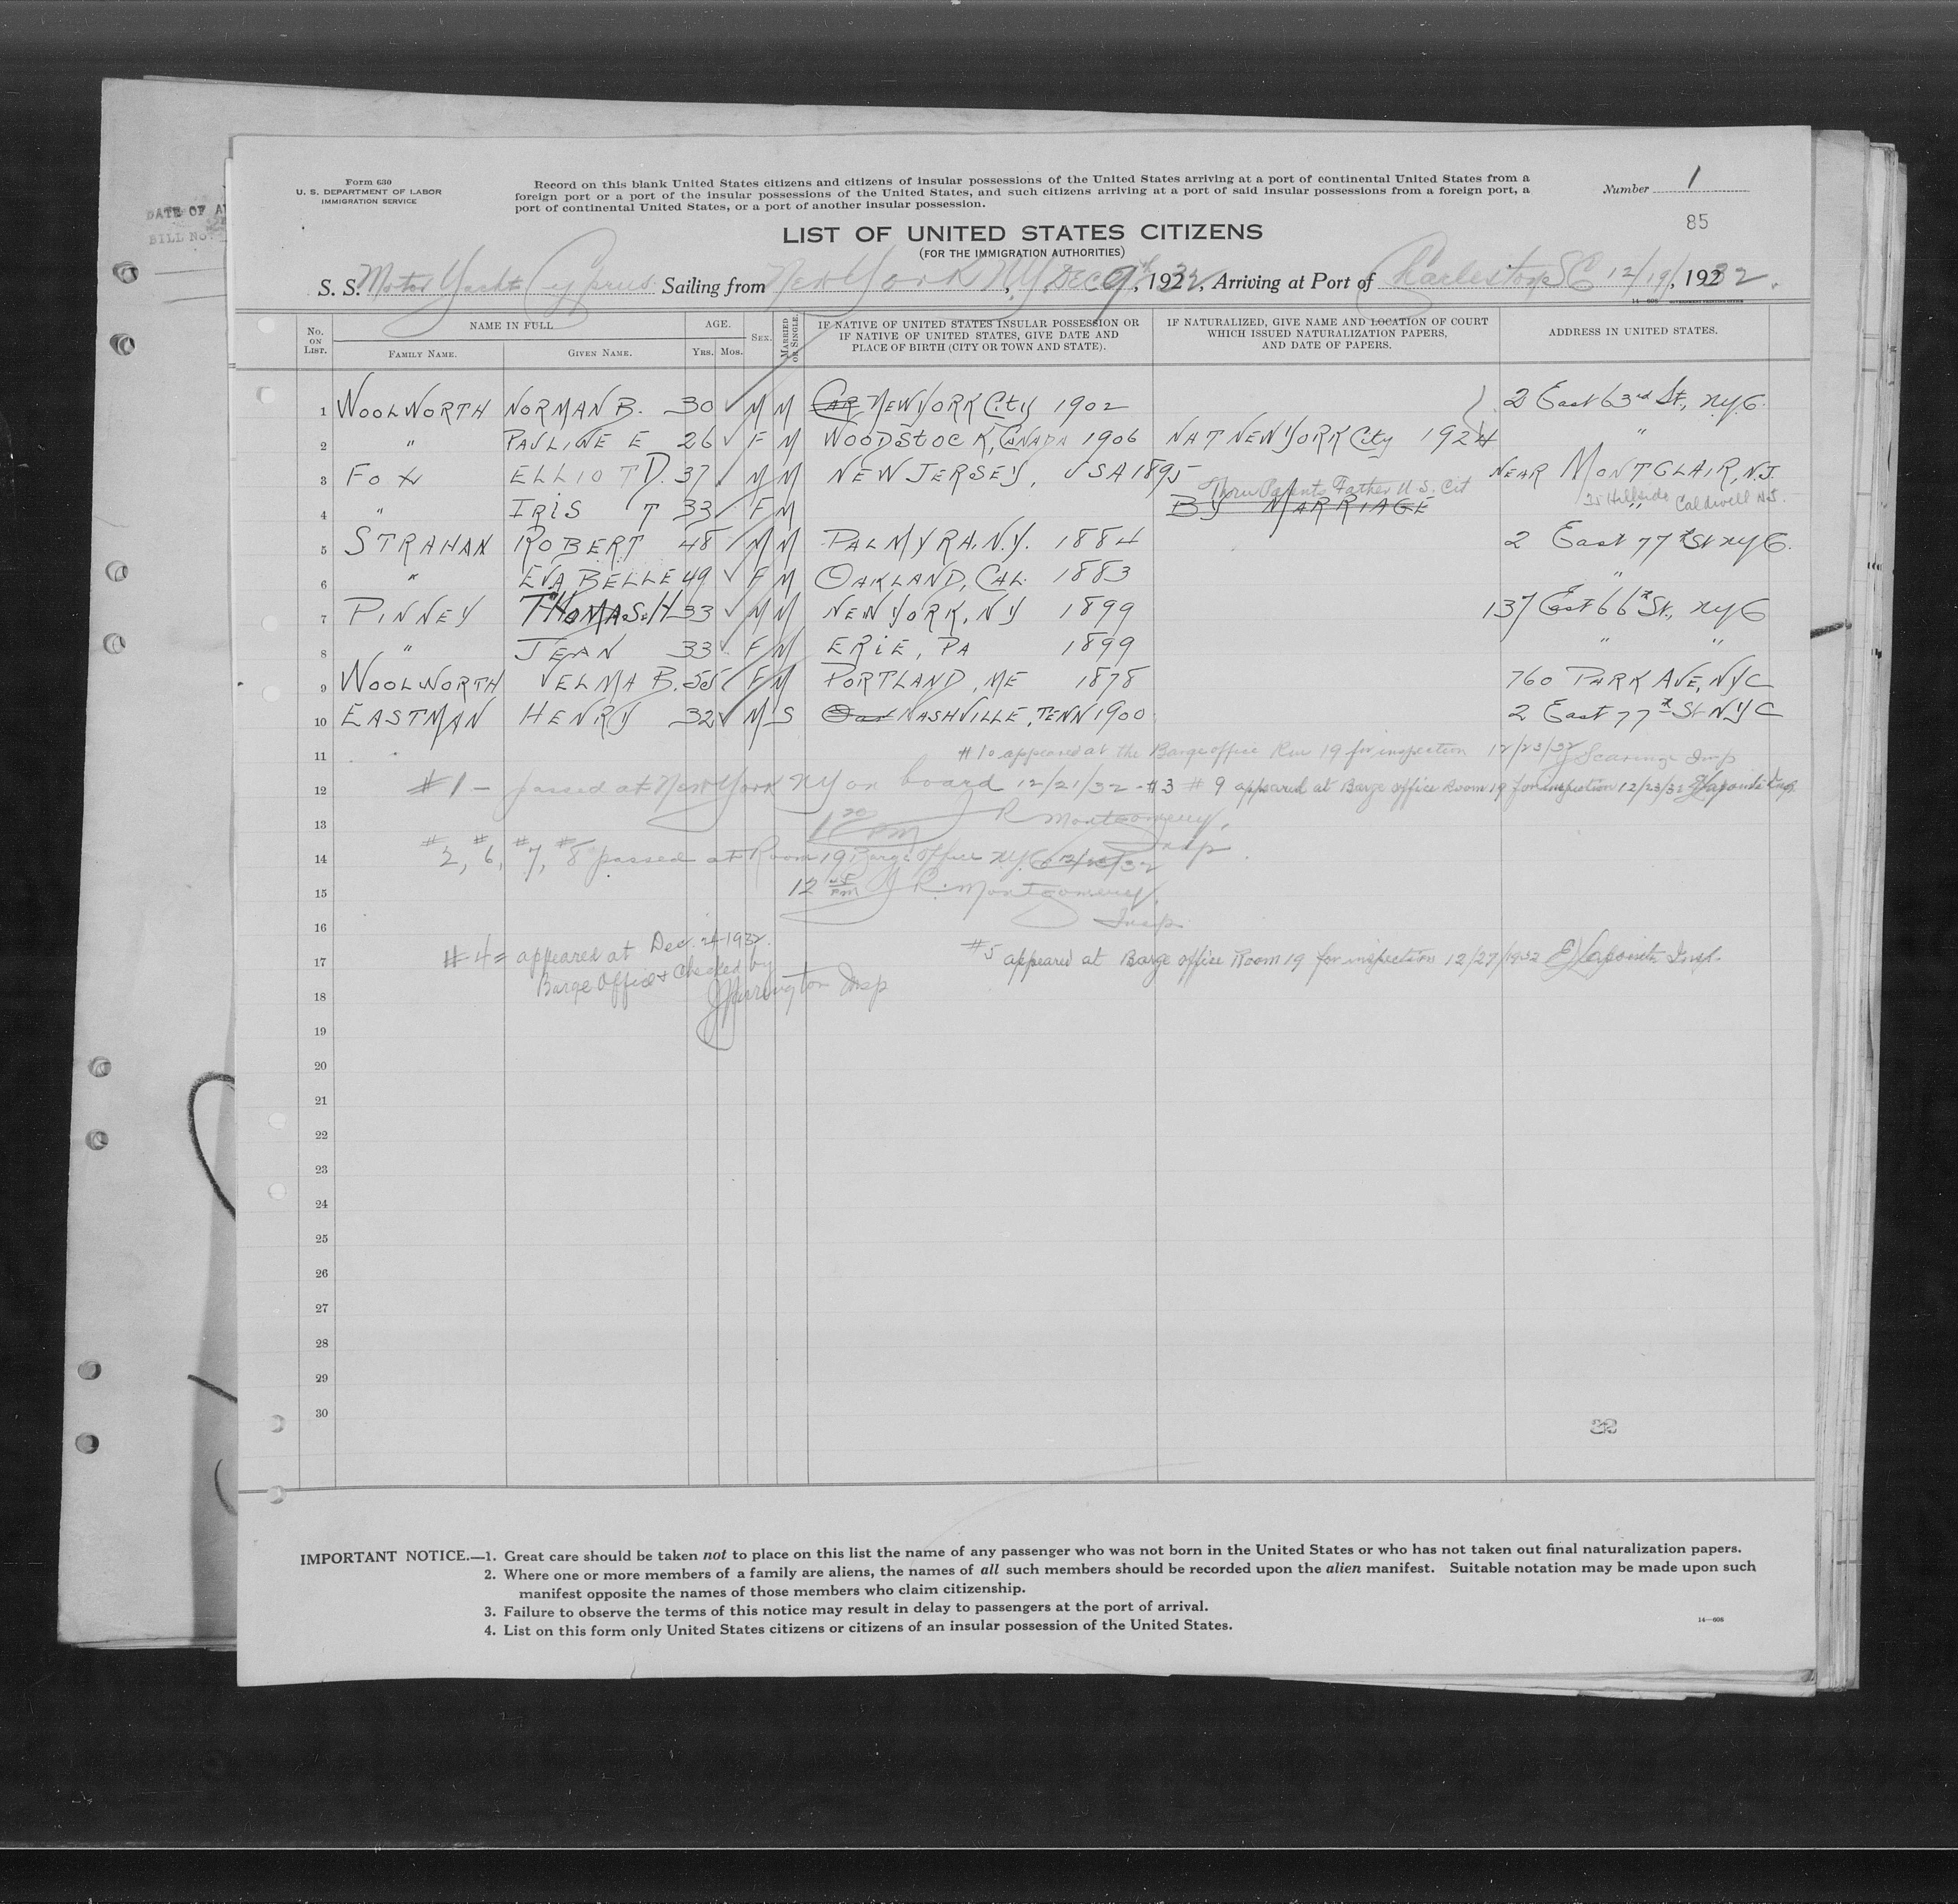 DATE OF A
BILL No.
Form 630
U. S. DEPARTMENT OF LABOR
IMMIGRATION SERVICE
Record on this blank United States citizens and citizens of insular possessions of the United States arriving at a port of continental United States from a
foreign port or a port of the insular possessions of the United States, and such citizens arriving at a port of said insular possessions from a foreign port, a
port of continental United States, or a port of another insular possession.
Number 1
85
LIST OF UNITED STATES CITIZENS
(FOR THE IMMIGRATION AUTHORITIES)
S. S. Motor Yacht Cyprus Sailing from New York N.Y. DEC 9th, 1932, Arriving at Port of Charleston SC 12/19/, 1932.
14-608 GOVERNMENT PRINTING OFFICE
No. ON LIST. NAME IN FULL. FAMILY NAME. GIVEN NAME. AGE. YRS. MOS. SEX. MARRIED OR SINGLE. IF NATIVE OF UNITED STATES INSULAR POSSESSION OR IF NATIVE OF UNITED STATES, GIVE DATE AND PLACE OF BIRTH (CITY OR TOWN AND STATE). IF NATURALIZED, GIVE NAME AND LOCATION OF COURT WHICH ISSUED NATURALIZATION PAPERS, AND DATE OF PAPERS. ADDRESS IN UNITED STATES.
1 WOOLWORTH NORMAN B. 30 ✓ M M CAR NEW YORK City 1902 2 East 63rd St., N.Y.C.
2 " PAULINE E 26 ✓ F M WOODSTOCK, CANADA 1906 NAT NEW YORK City 1924 "
3 FOX ELLIOT D. 37 ✓ M M NEW JERSEY, USA 1895 NEAR MONTCLAIR, N.J.
Thru Parents Father U.S. Cit
25 Hillside Caldwell N.J.
4 " IRIS T 33 F M BY MARRIAGE "
5 STRAHAN ROBERT 48 ✓ M M PALMYRA, N.Y. 1884 2 East 77th St NYC.
6 " EVA BELLE 49 ✓ F M OAKLAND, CAL. 1883 "
7 PINNEY THOMAS H 33 ✓ M M NEW YORK, NY 1899 137 East 66th St., NYC
8 " JEAN 33 ✓ F M ERIE, PA 1899 " "
9 WOOLWORTH VELMA B. 55 ✓ F M PORTLAND, ME 1878 760 PARK AVE, NYC
10 EASTMAN HENRY 32 ✓ M S NASHVILLE, TENN 1900 2 East 77th St NYC
11 #10 appeared at the Barge office Rm 19 for inspection 12/23/32 Insp
12 #1 - passed at New York NY on board 12/21/32 - #3 #9 appeared at Barge office Room 19 for inspection 12/23/32 Lapointe Insp.
13 1 20 PM R Montgomery, Insp.
14 #2, #6, #7, #8 passed at Room 19 Barge Office NYC 12/23/32
15 12 PM J R. Montgomery,
16 Insp.
17 #4 = appeared at Dec. 24-1932. #5 appeared at Barge office Room 19 for inspection 12/27/1932 E Lapointe Insp.
18 Barge Office & Checked by Insp
19
20
21
22
23
24
25
26
27
28
29
30
IMPORTANT NOTICE.—1. Great care should be taken not to place on this list the name of any passenger who was not born in the United States or who has not taken out final naturalization papers.
2. Where one or more members of a family are aliens, the names of all such members should be recorded upon the alien manifest. Suitable notation may be made upon such
manifest opposite the names of those members who claim citizenship.
3. Failure to observe the terms of this notice may result in delay to passengers at the port of arrival.
4. List on this form only United States citizens or citizens of an insular possession of the United States.
14—608